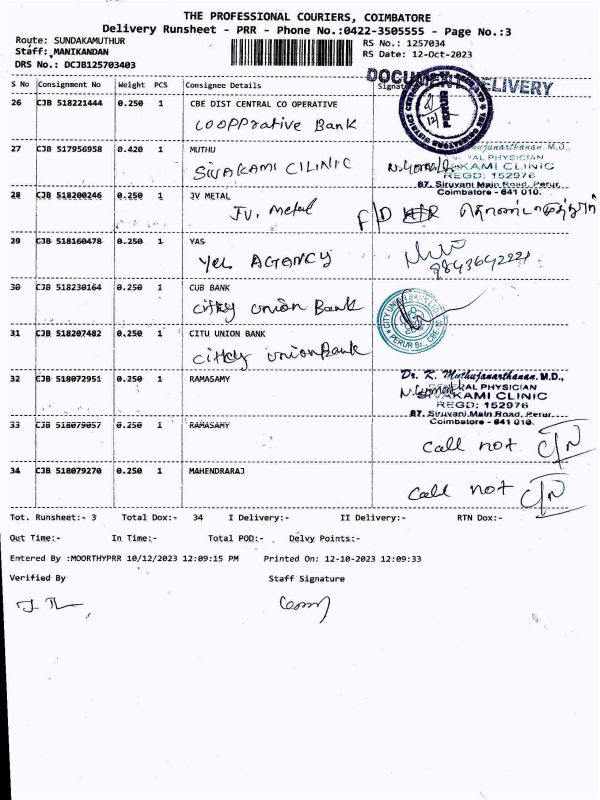 THE PROFESSIONAL COURIERS, COIMBATORE
Delivery Runsheet - PRR - Phone No.:0422-3505555 - Page No.:3
Route: SUNDAKAMUTHUR
Staff: MANIKANDAN
DRS No.: DCJB125703403
RS No.: 1257034
RS Date: 12-Oct-2023
S No Consignment No Weight PCS Consignee Details
DELIVERY
26 CJB 518221444 0.250 1 CBE DIST CENTRAL CO OPERATIVE
COOPPrative Bank
27 CJB 517956958 0.420 1 MUTHU
SIVAKAMI CILINIC
PHYSICIAN
KAMI CLINIC
REGD: 152976
87, Siruvani Main Road, Perur,
Coimbatore - 641 010.
28 CJB 518200246 0.250 1 JV METAL
JV. Metal
F/D
29 CJB 518160478 0.250 1 YAS
Yes AGENCY
9843642221
30 CJB 518230164 0.250 1 CUB BANK
Citky union Bank
CITY UNION BANK LTD
PERUR Br., CBE-10
31 CJB 518207482 0.250 1 CITU UNION BANK
Citky union Bank
32 CJB 518072951 0.250 1 RAMASAMY
Dr. K. Muthujanarthanan. M.D.,
PHYSICIAN
KAMI CLINIC
REGD: 152976
87, Siruvani Main Road, Perur,
Coimbatore - 641 010.
33 CJB 518079057 0.250 1 RAMASAMY
Call not C/N
34 CJB 518079270 0.250 1 MAHENDRARAJ
Call not C/N
Tot. Runsheet:- 3 Total Dox:- 34 I Delivery:- II Delivery:- RTN Dox:-
Out Time:- In Time:- Total POD:- Delvy Points:-
Entered By :MOORTHYPRR 10/12/2023 12:09:15 PM Printed On: 12-10-2023 12:09:33
Verified By Staff Signature